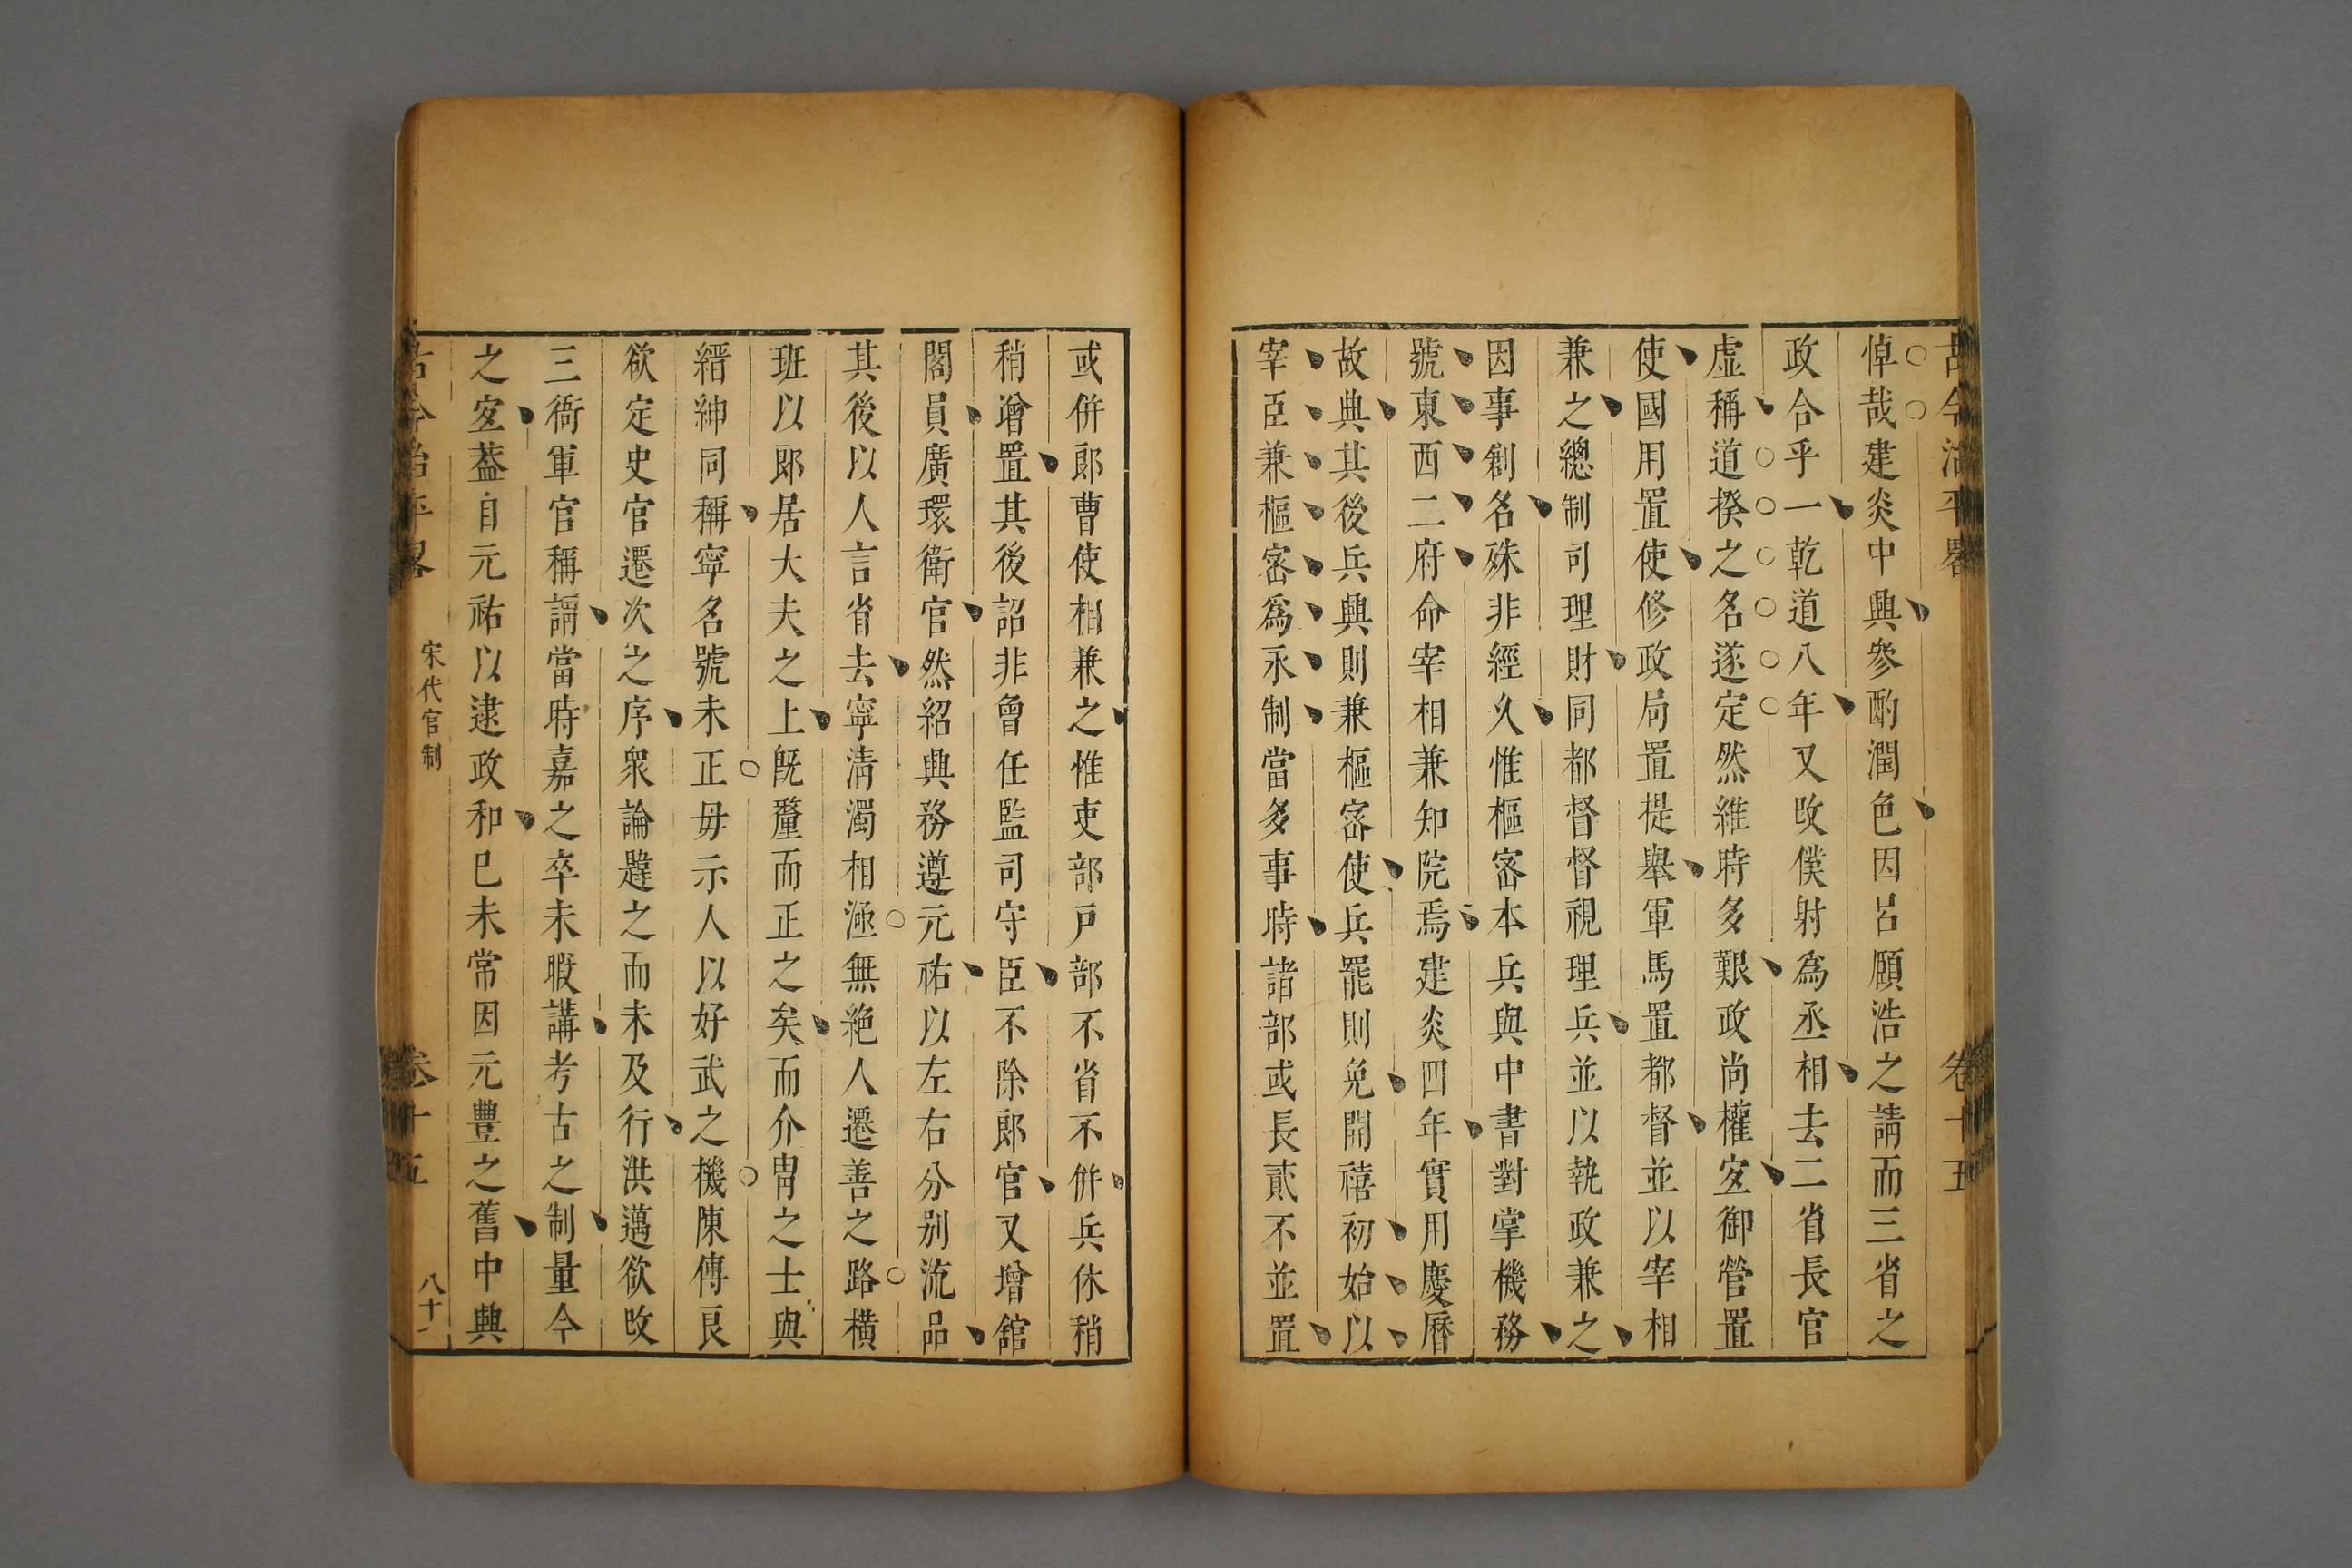 古今治平畧 卷十五
悼哉建炎中興參酌潤色因呂頤浩之請而三省之
政合乎一乾道八年又改僕射爲丞相去二省長官
虛稱道揆之名遂定然維時多艱政尚權宐御營置
使國用置使修政局置提舉軍馬置都督並以宰相
兼之總制司理財同都督督視理兵並以執政兼之
因事創名殊非經久惟樞密本兵與中書對掌機務
號東西二府命宰相兼知院焉建炎四年實用慶曆
故典其後兵興則兼樞密使兵罷則免開禧初始以
宰臣兼樞密爲永制當多事時諸部或長貳不並置
或併郎曹使相兼之惟吏部戸部不省不併兵休稍
稍增置其後詔非曾任監司守臣不除郎官又增舘
閣員廣環衛官然紹興務遵元祐以左右分别流品
其後以人言省去寧清濁相涵無絶人遷善之路橫
班以郎居大夫之上旣釐而正之矣而介冑之士與
縉紳同稱寧名號未正毋示人以好武之機陳傅良
欲定史官遷次之序衆論韙之而未及行洪邁欲改
三衙軍官稱謂當時嘉之卒未暇講考古之制量今
之宐葢自元祐以逮政和已未常因元豐之舊中興
古今治平畧 宋代官制 卷十五 八十一